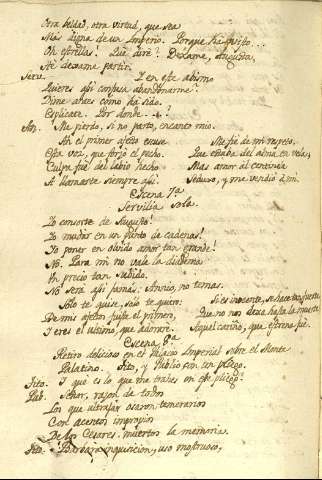 Otra beldad, otra virtud, que sea
Más digna de un Imperio. Porque ha
Oh estrellas! Qué diré? Dexame, Augusta,
Ah! dexame partir.
Serv. Y en este abismo
Quieres asi confusa abandonarme?
Dime antes como ha sido.
Esplicate. Por donde
An. Me pierdo, si no parto, encanto mio.
Ah el primer afecto Me fié de mi respeto,
Esta vez, que forjó el pecho. Que estaba del alma en vela,
Culpa fué del labio hecho Mas amor al centinela
A llamarte siempre asi. Seduxo, y me vendió á mi.
Escena 7ª
Servilia sola.
Yo consorte de Augusto!
Yo mudar en un punto de cadenas!
Yo poner en olvido amor tan grande!
No. Para mi no vale la diadema
Un precio tan subido.
No será asi jamas. Annio, no temas.
Solo te quise, solo te quiero: Si es inocente, se hace tan fuerte
De mis afectos fuiste el primero, Que no nos dexa hasta la muerte
Y eres el ultimo, que adoraré. Aquel cariño, que estreno fué.
Escena 8ª
Retiro delicioso en el Palacio Imperial sobre el Monte
Palatino. Tito, y Publio con un pliego.
Tito. Y que es lo que me trahes en ese pliego?
Pub. Señor, razon de todos
Los que ultrajar osaron temerarios
Con acentos impropios
De los Cesares muertos la memoria.
Tito. Barbara inquisicion, uso mostruoso,